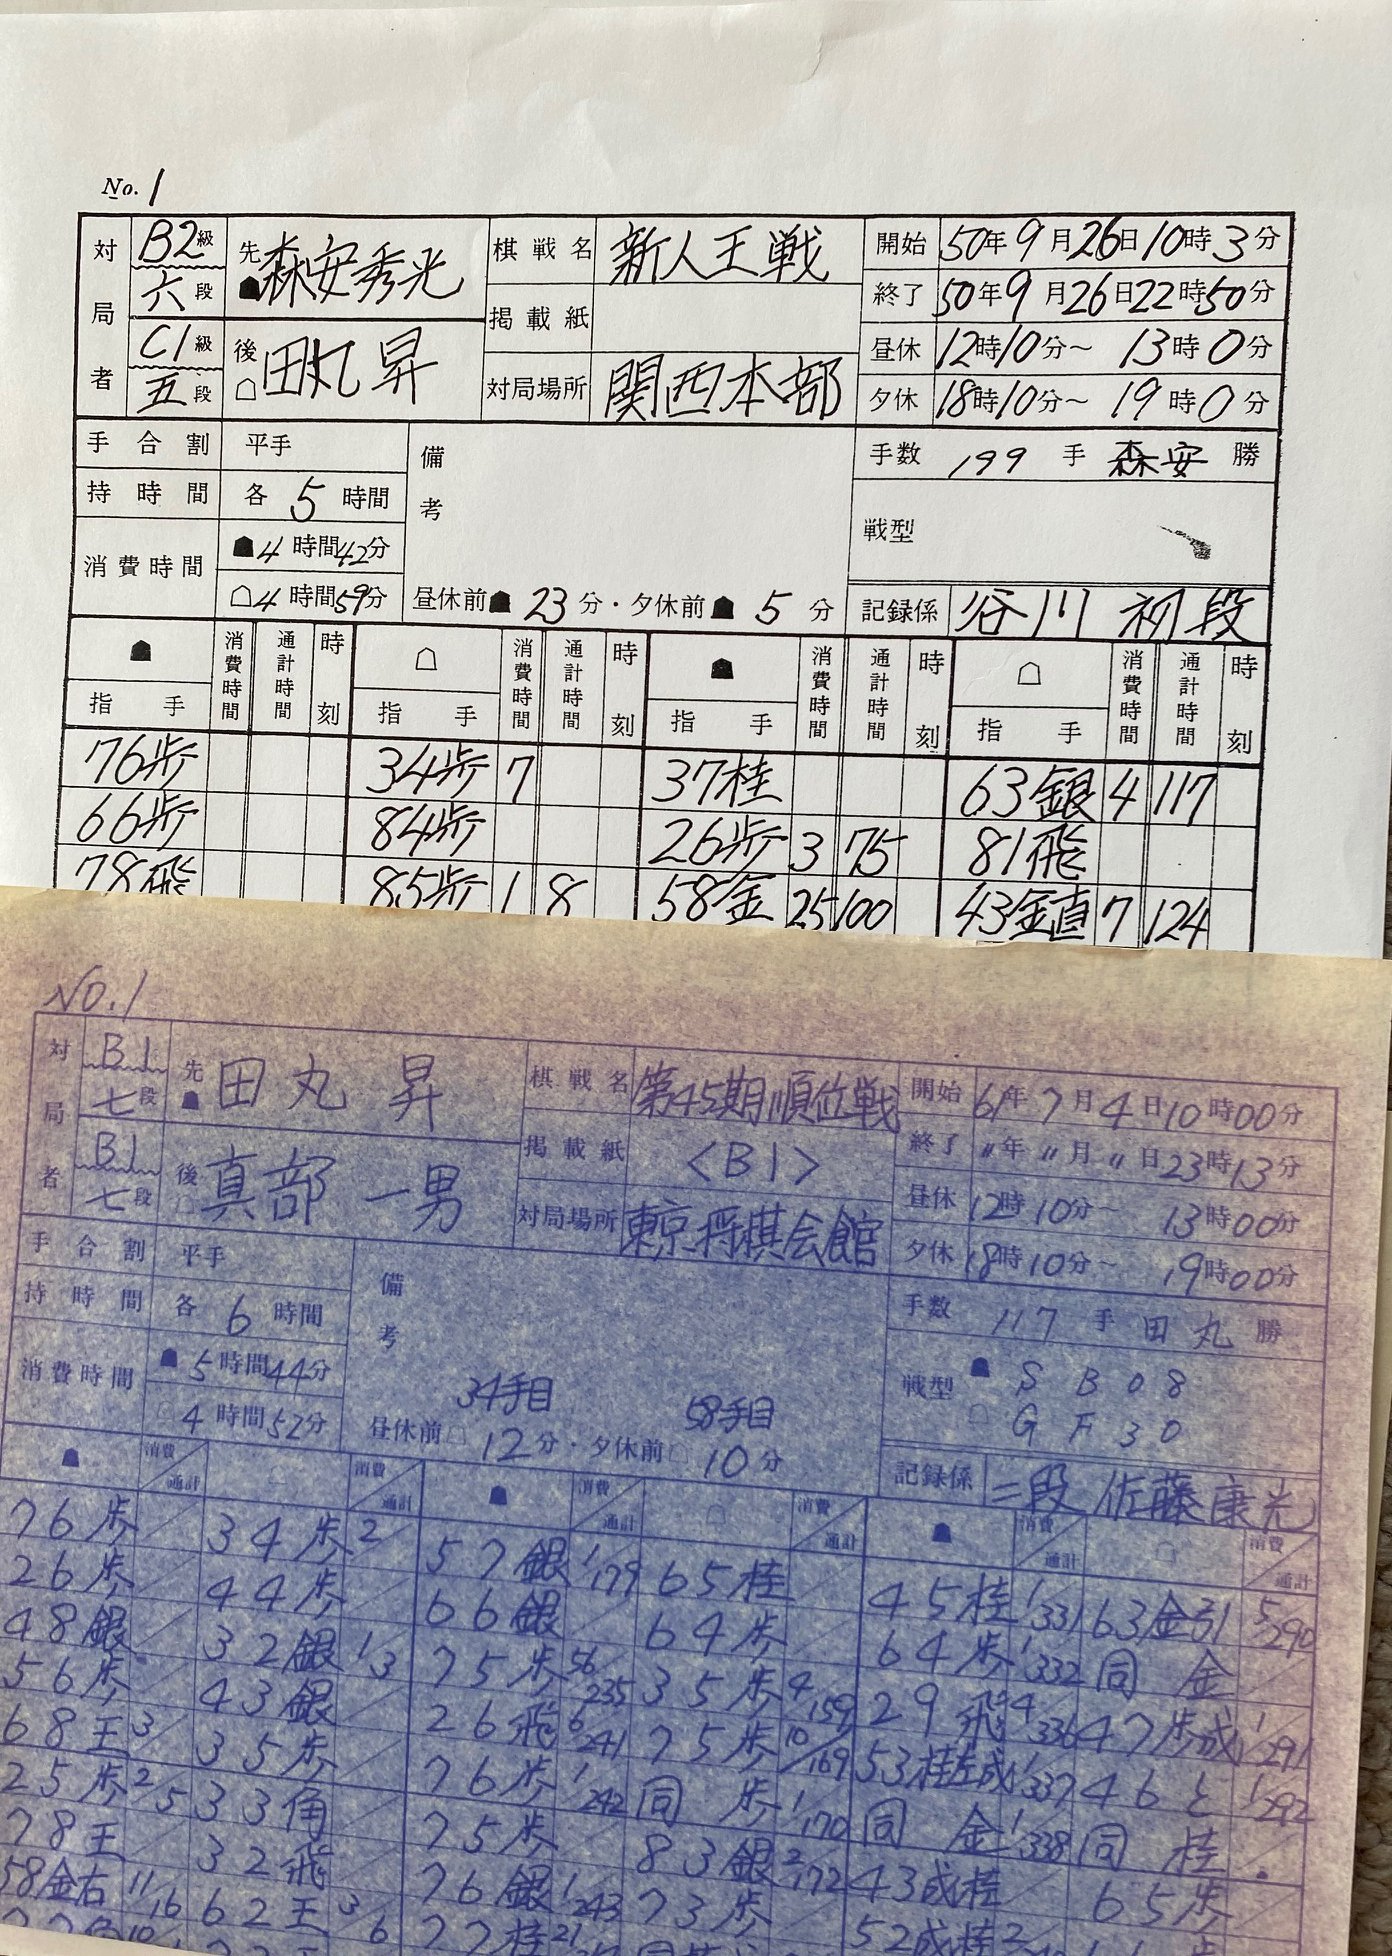 No. 1
対局者 B2級 六段 先 森安秀光 棋戦名 新人王戦 開始 50年9月26日10時3分
掲載紙 終了 50年9月26日22時50分
C1級 五段 後 田丸昇 対局場所 関西本部 昼休 12時10分〜13時0分
夕休 18時10分〜19時0分
手合割 平手 備考 手数 199手 森安 勝
持時間 各5時間 戦型
消費時間 4時間42分
4時間59分 昼休前 23分・夕休前 5分 記録係 谷川 初段
指手 消費時間 通計時間 時刻 指手 消費時間 通計時間 時刻 指手 消費時間 通計時間 時刻 指手 消費時間 通計時間 時刻
76歩 34歩 7 37桂 63銀 4 117
66歩 84歩 26歩 3 75 81飛
78飛 85歩 1 8 58金 25 100 43金直 7 124
NO.1
対局者 B1 七段 先 田丸 昇 棋戦名 第45期順位戦 開始 61年7月4日10時00分
掲載紙 <B1> 終了 〃年〃月〃日23時13分
B1 七段 後 真部 一男 対局場所 東京将棋会館 昼休 12時10分〜13時00分
夕休 18時10分〜19時00分
手合割 平手 備考 手数 117手 田丸 勝
持時間 各6時間 戦型 SB08
消費時間 5時間44分 34手目 58手目 GF30
4時間52分 昼休前 12分・夕休前 10分 記録係 二段 佐藤康光
消費/通計 消費/通計 消費/通計 消費/通計 消費/通計 消費/通計
76歩 34歩 2/ 57銀 1/179 65桂 45桂 1/331 63金引 5/290
26歩 44歩 66銀 64歩 64歩 1/332 同金
48銀 32銀 1/3 75歩 56/235 35歩 4/159 29飛 4/336 47歩成 1/291
56歩 43銀 26飛 6/241 75歩 10/169 53桂左成 1/337 46と 1/292
68王 3/ 35歩 76歩 1/242 同歩 1/170 同金 1/338 同桂
25歩 2/5 33角 75歩 83銀 2/172 43成桂 65歩
78王 32飛 76銀 1/243 73歩 52成桂 2/
58金右 11/16 62王 3/6 77桂 21/